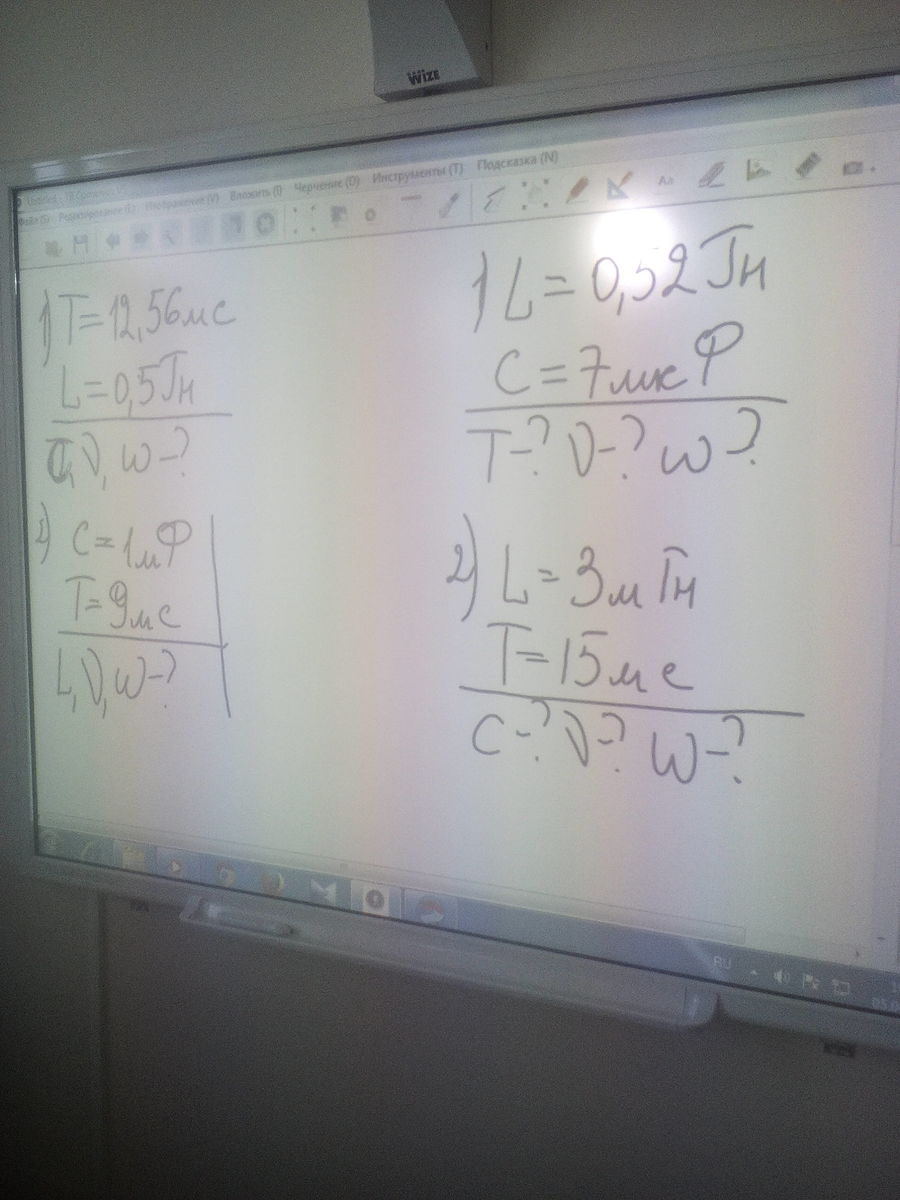 WIZE
Файл (F) Редактирование (E) Изображение (V) Вложить (I) Черчение (D) Инструменты (T) Подсказка (N)
1) T=12,56мс
L=0,5Гн
C, ν, ω-?
2) C=1мФ
T=9мс
L, ν, ω-?
1) L=0,52Гн
C=7мкФ
T-? ν-? ω-?
2) L=3мГн
T=15мс
C-? ν-? ω-?
RU